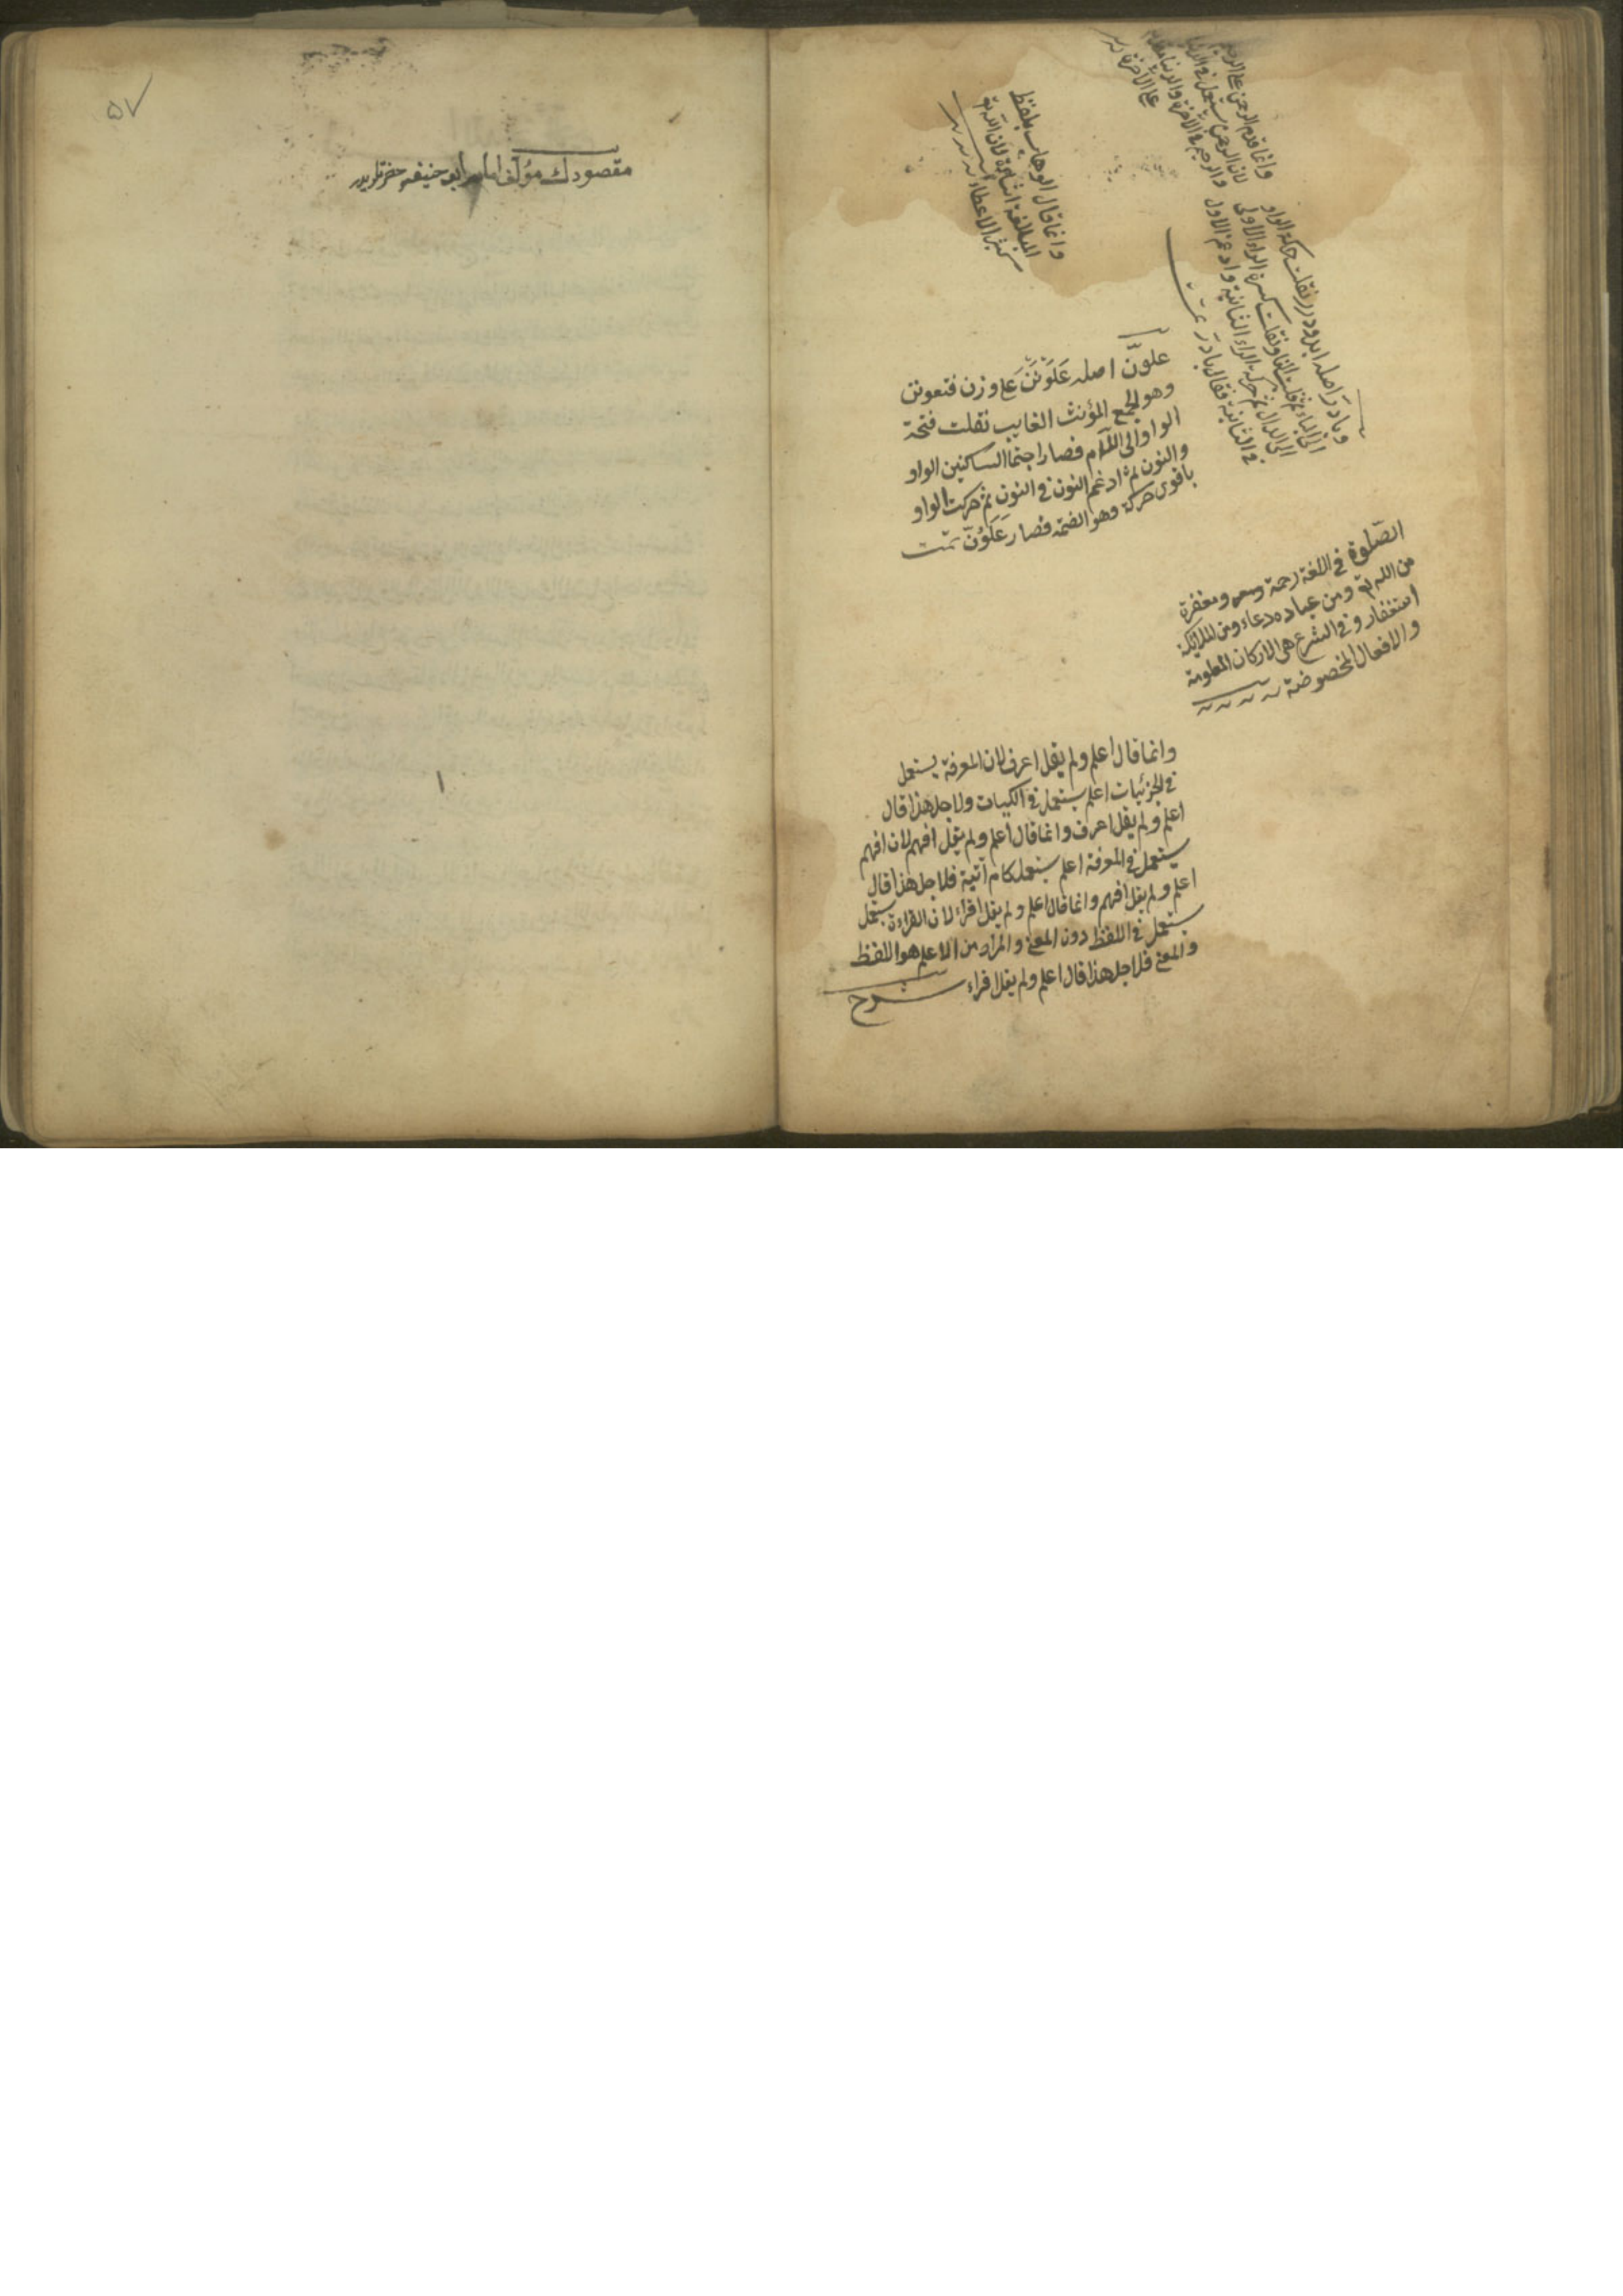 وانما قدم الرحمن على الرحيم
لان الرحمن يستعمل في الدنيا
والرحيم في الآخرة والدنيا مقدم
على الآخرة
وانما قال الوهاب بلفظ
المبالغة اشارة لان الله تع
كثير الاعطاء
وبادر اصله
الى الباء ثم قلبت الفا ونقلت كسرة الراء الاولى
الى الدال ثم حركت الراء الثانية وادغم الاول
في الثانية فقال بادر تمت
علونّ اصله علونن على وزن فتعونن
وهو الجمع المؤنث الغايب نقلت فتحة
الواو الى اللام فصار اجتماالساكنين الواو
والنون ثم ادغم النون في النون ثم حركت الواو
باقوى حركة وهو الضمة فصار عَلَوُنّ تمت
الصلوة في اللغة رحمة ومغفرة
من الله تع ومن عباده دعاء ومن الملائكة
استغفار وفي الشرع هي الاركان المعلومة
والافعال المخصوصة
وانما قال اعلم ولم يقل اعرف لان المعرفة يستعمل
في الجزئيات اعلم يستعمل في الكليات ولاجل هذا قال
اعلم ولم يقل اعرف وانما قال اعلم ولم يقل افهم لان افهم
يستعمل في المعرفة اعلم يستعمل فلاجل هذا قال
اعلم ولم يقل افهم وانما قال اعلم ولم يقل اقراء لان القراءة يستعمل
يستعمل في اللفظ دون المعنى والمراد من الاعلم هو اللفظ
والمعنى فلاجل هذا قال اعلم ولم يقل اقراء
شرح
٥٧
مقصودك مؤلف امام ابو حنيفه حضرتلريدر